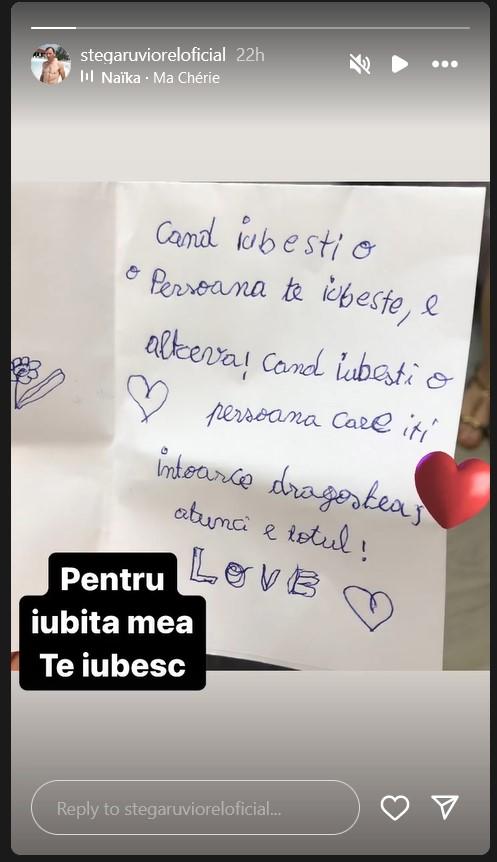 stegaruvioreloficial 22h
Naïka · Ma Chérie
Cand iubesti o
o Persoana te iubeste, e
altceva! Cand iubesti o
persoana care iti
intoarce dragostea,
atunci e totul!
LOVE
Pentru
iubita mea
Te iubesc
Reply to stegaruvioreloficial...